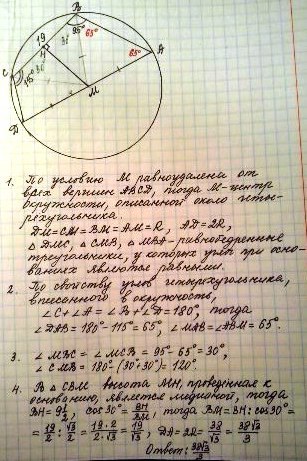 B
19
95°
65°
H
65°
A
C
115°
M
D
1. По условию M равноудалена от
всех вершин ABCD, тогда M-центр
окружности, описанной около четы-
рёхугольника.
DM=CM=BM=AM=R, AD=2R,
△DMC, △CMB, △MBA-равнобедренные
треугольники, у которых углы при осно-
ваниях являются равными.
2. По свойству углов четырехугольника,
вписанного в окружность,
∠C+∠A=∠B+∠D=180°, тогда
∠DAB=180°-115°=65°, ∠MAB=∠ABM=65°.
3. ∠MBC=∠MCB=95°-65°=30°,
∠CMB=180°-(30°+30°)=120°.
4. В △CBM высота MH, проведённая к
основанию, является медианой, тогда
BH=9½, cos30°=BH/BM, тогда BM=BH:cos30°=
=19/2:√3/2=19·2/2·√3=19/√3, DA=2R=38/√3=38√3/3
Ответ: 38√3/3